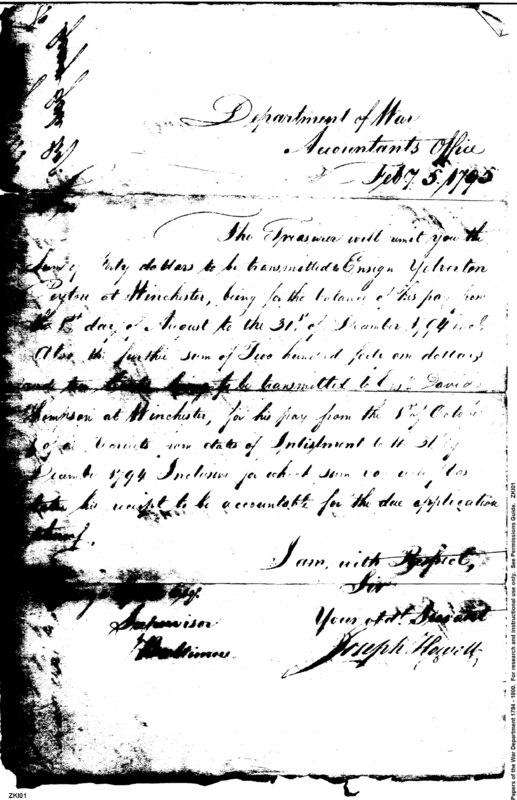 Department of War
Accountants Office
Feby. 5. 1795
The Treasurer will remit you the
Sum of forty dollars to be transmitted to Ensign Yelverton
Peyton at Winchester, being for the balance of his pay from
the 1st day of August to the 31st of December 1794 incl.
Also, the further sum of Two hundred forty one dollars
and ten Cents being to be transmitted to Ens. David
Thompson at Winchester, for his pay from the 1st of October
of a Recruits from dates of Inlistment to the 31 of
December 1794 Inclusive for which sum you will
take his receipt to be accountable for the due application
thereof.
I am, with Respect,
Sir
Your obdt. Servant
Joseph Howell
Esqr.
Supervisor
Baltimore
ZKI01
Papers of the War Department 1784 - 1800. For research and instructional use only. See Permissions Guide. ZKI01